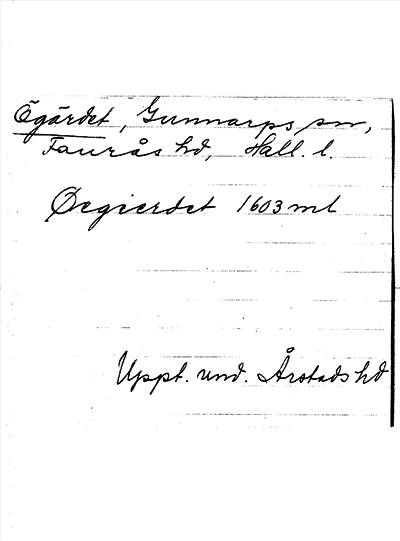 Ögärdet, Gunnarps sn,
Faurås hd, Hall. l.
Øegierdet 1603 ml
Uppt. und. Årstads hd